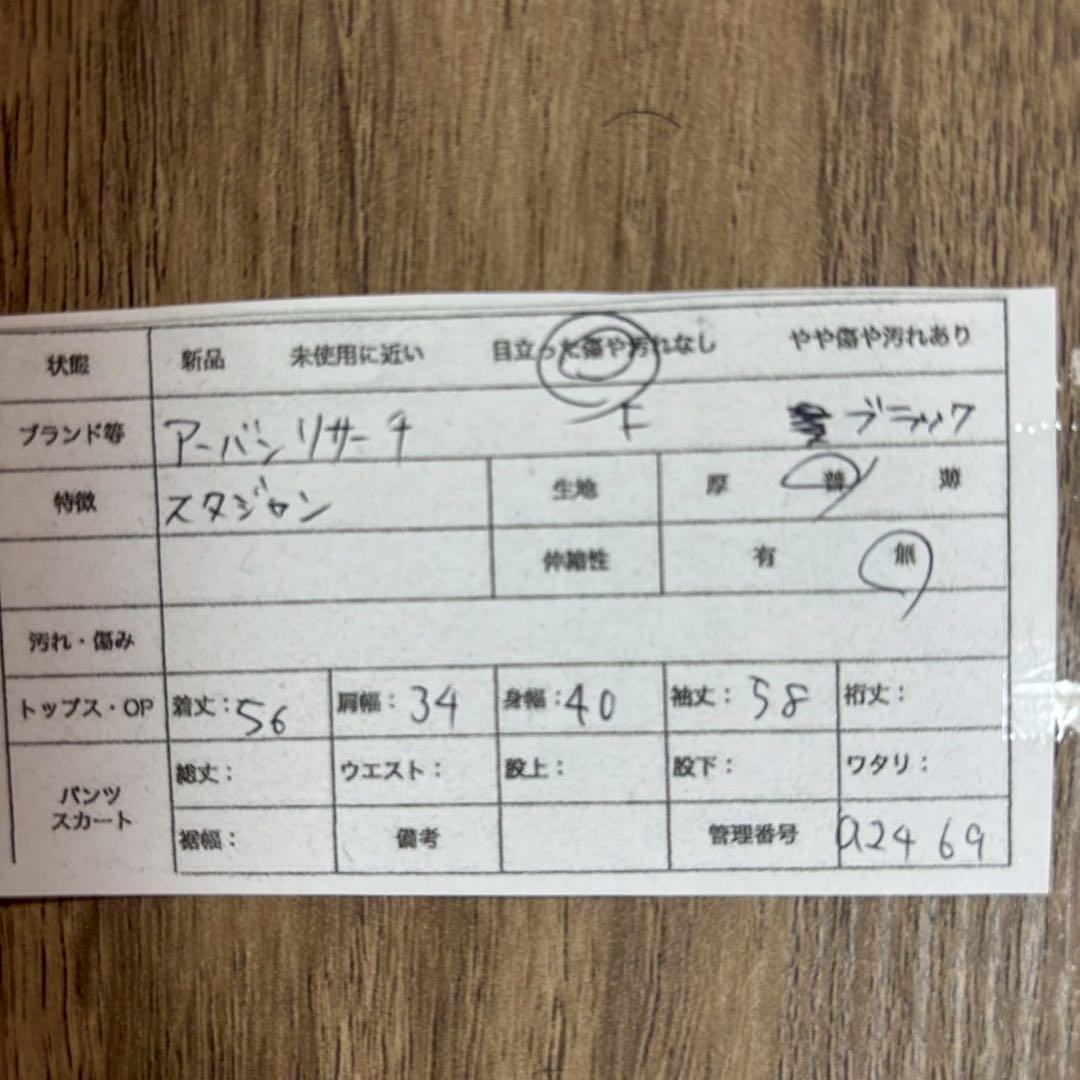 状態 新品 未使用に近い 目立った傷や汚れなし やや傷や汚れあり
ブランド等 アーバンリサーチ F ブラック
特徴 スタジャン 生地 厚 普 薄
伸縮性 有 無
汚れ・傷み
トップス・OP 着丈:56 肩幅:34 身幅:40 袖丈:58 裄丈:
パンツ スカート 総丈: ウエスト: 股上: 股下: ワタリ:
裾幅: 備考 管理番号 a2469